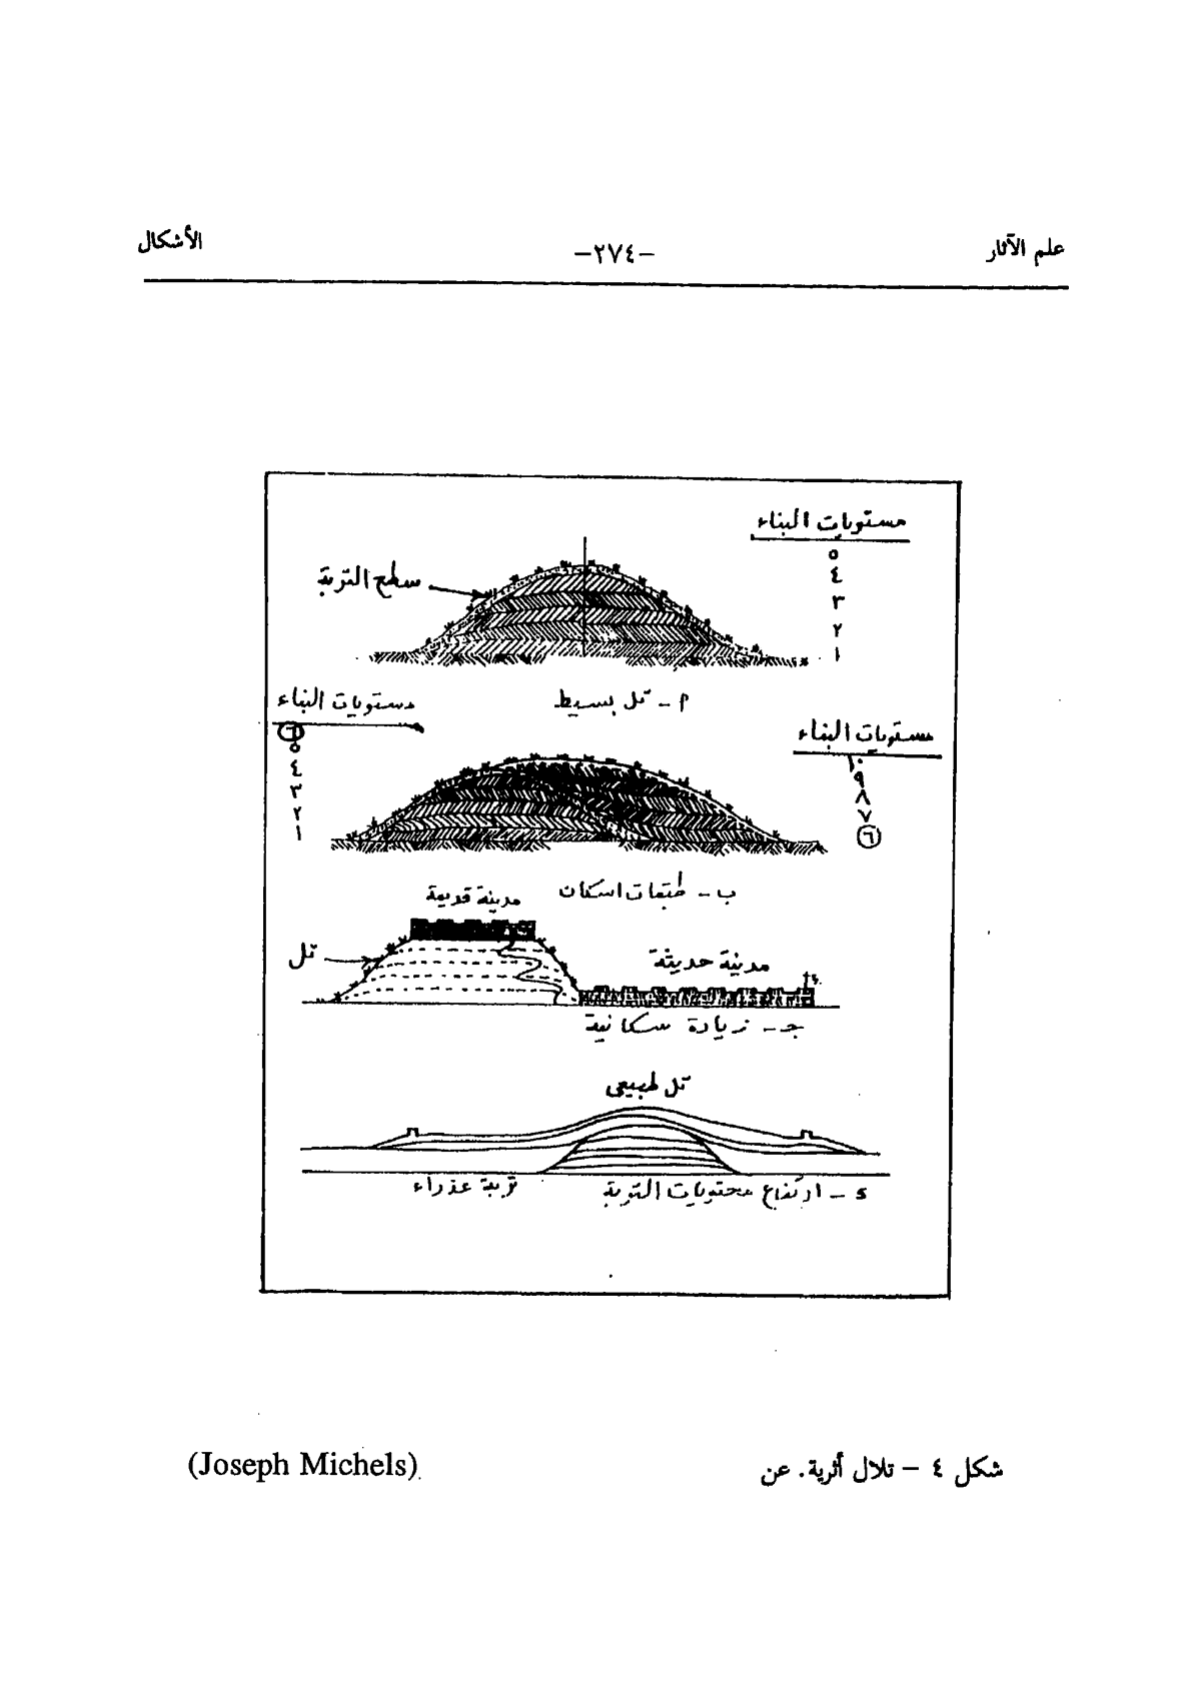 علم الآثار -٢٧٤- الأشكال
مستويات البناء
٥
٤
٣
٢
١
سطح التربة
أ - تل بسيط
مستويات البناء
٦
٥
٤
٣
٢
١
مستويات البناء
١٠
٩
٨
٧
٦
ب - طبقات اسكان
مدينة قديمة
تل
مدينة حديثة
جـ - زيادة سكانية
تل طبيعي
د - ارتفاع محتويات التربة
تربة عذراء
شكل ٤ - تلال أثرية. عن (Joseph Michels)